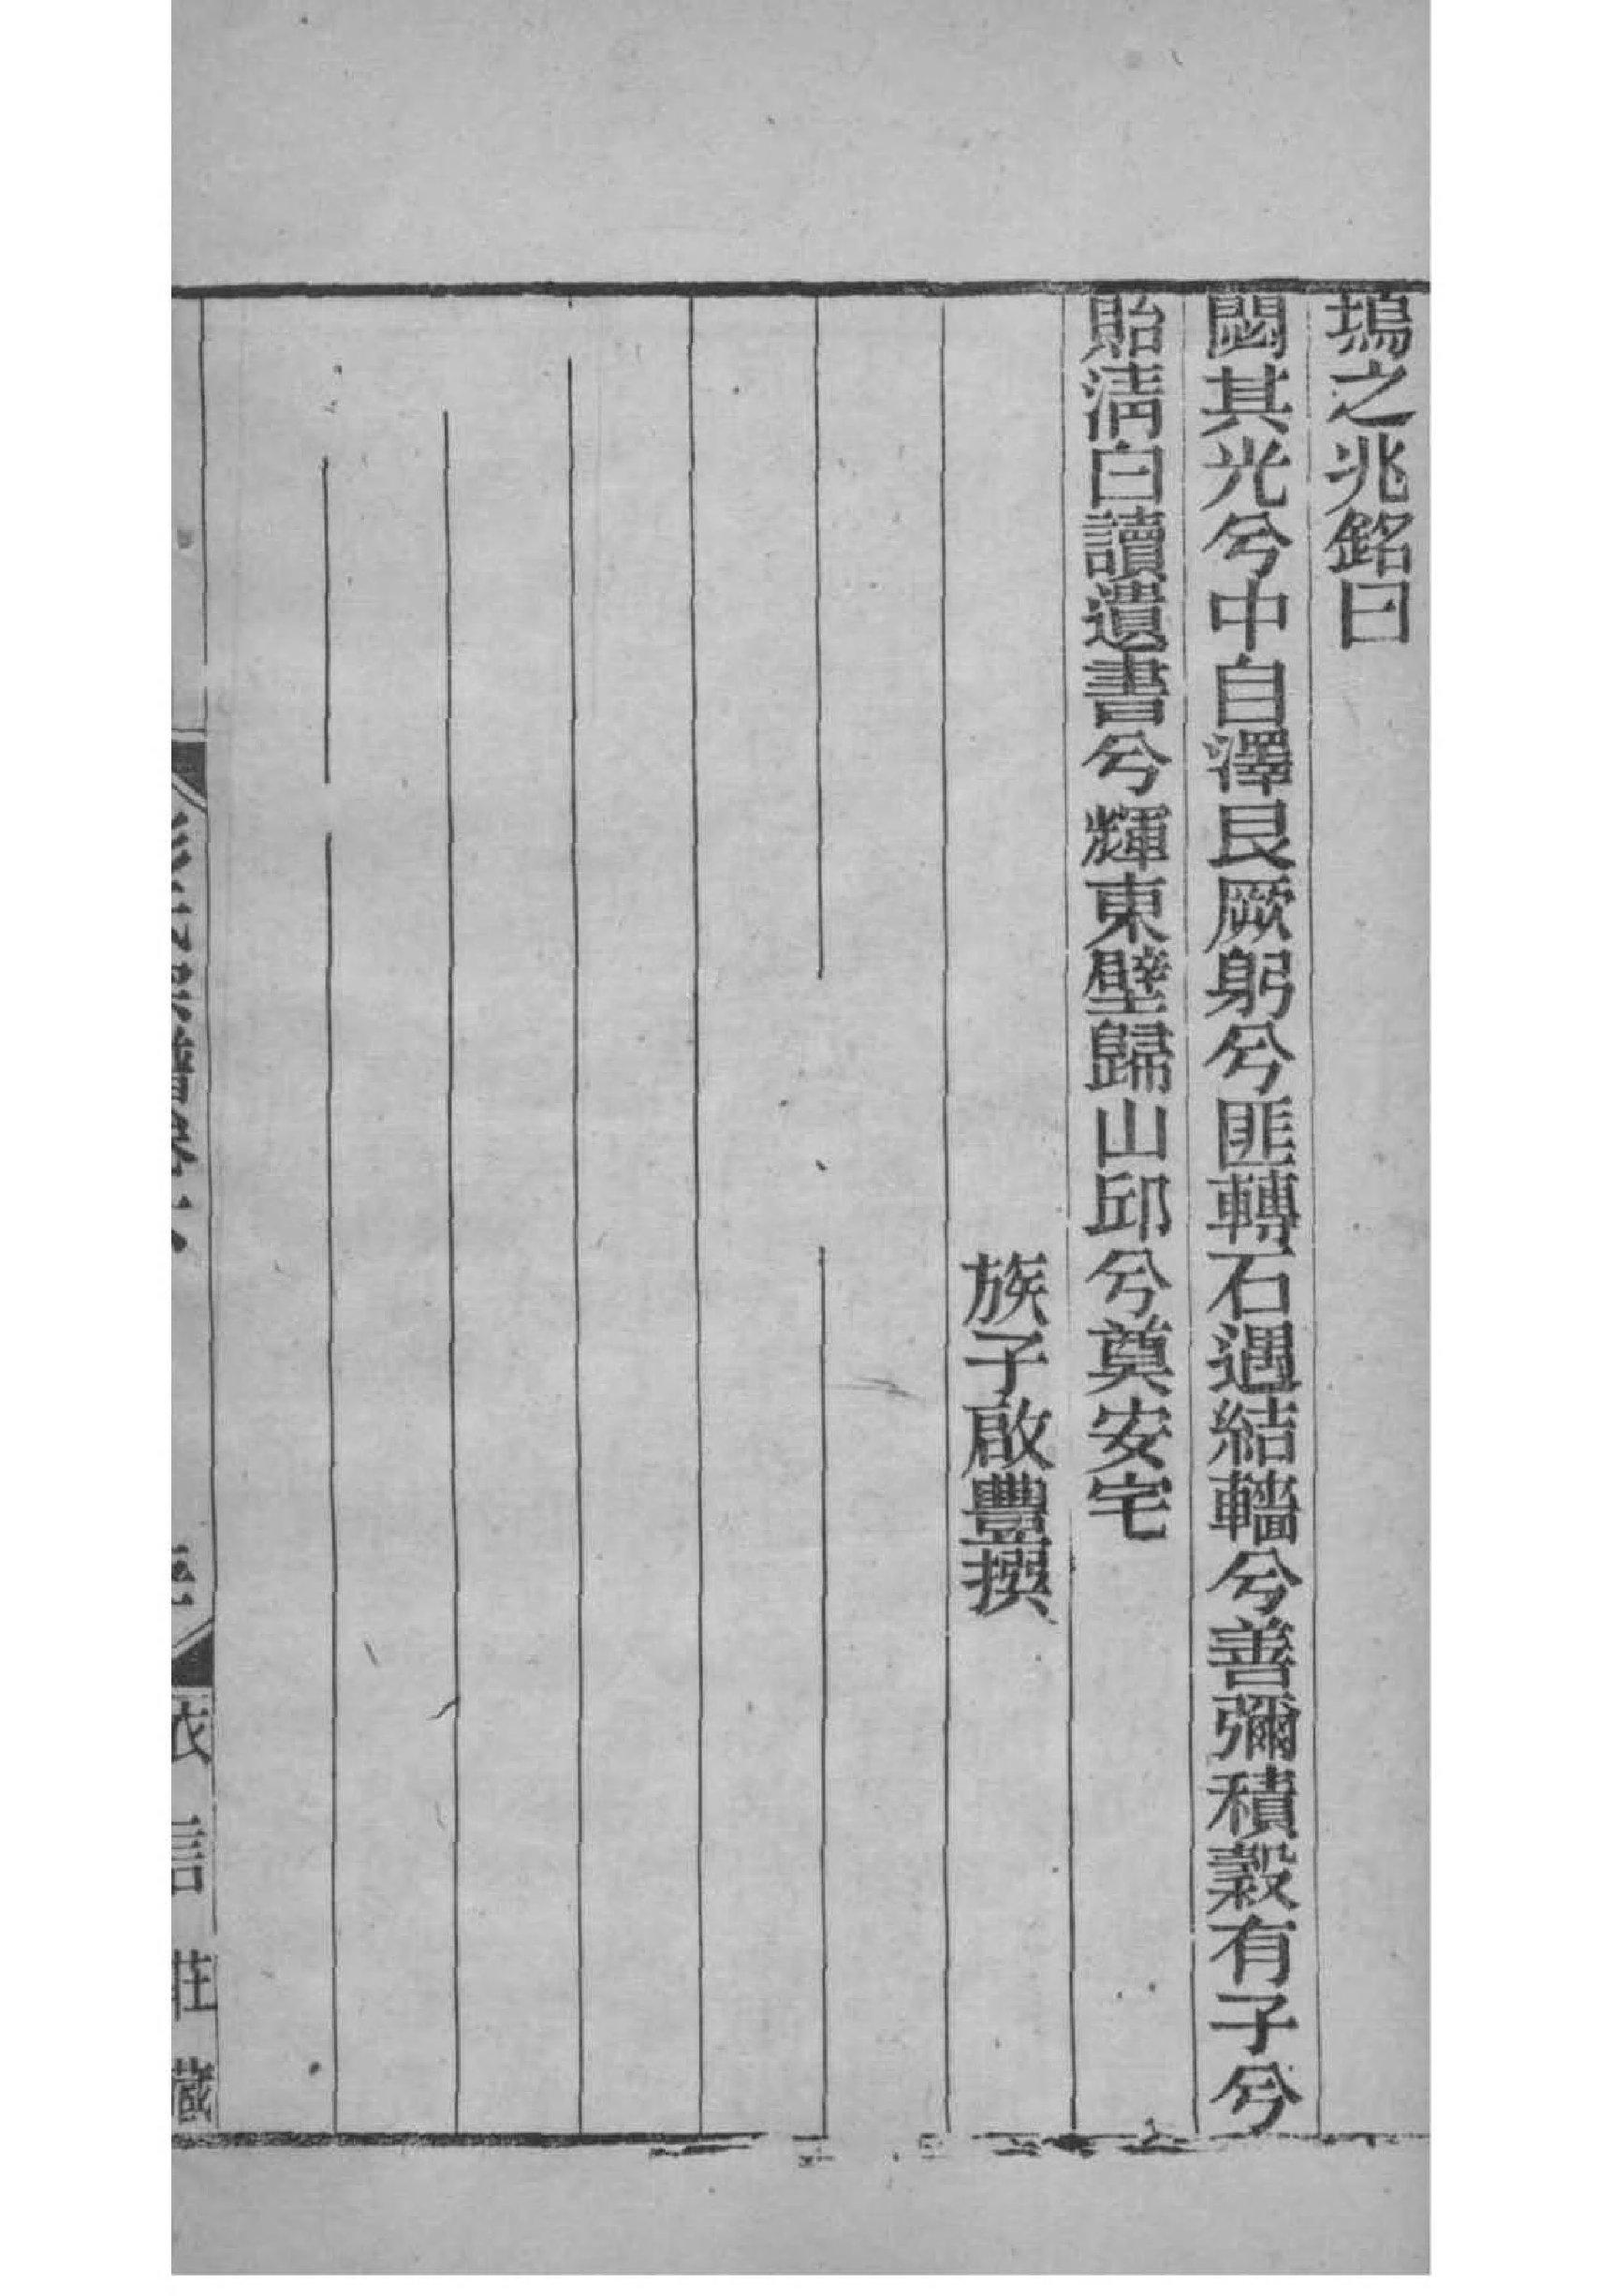 塢之兆銘曰
閟其光兮中自澤艮厥躬兮匪轉石遇結轖兮善彌積穀有子兮
貽淸白讀遺書兮輝東壁歸山邱兮奠安宅
族子啟豐撰
彭氏宗譜卷六
衣言莊藏